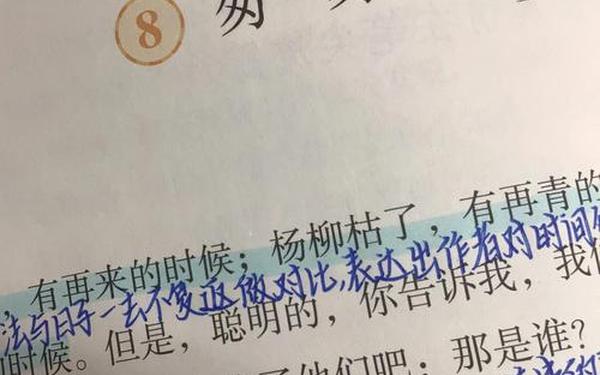 8 匆
，有再来的时候；杨柳枯了，有再青的
法与日子一去不复返做对比，表达出作者对时间
时候。但是，聪明的，你告诉我，我们
他们吧：那是谁？